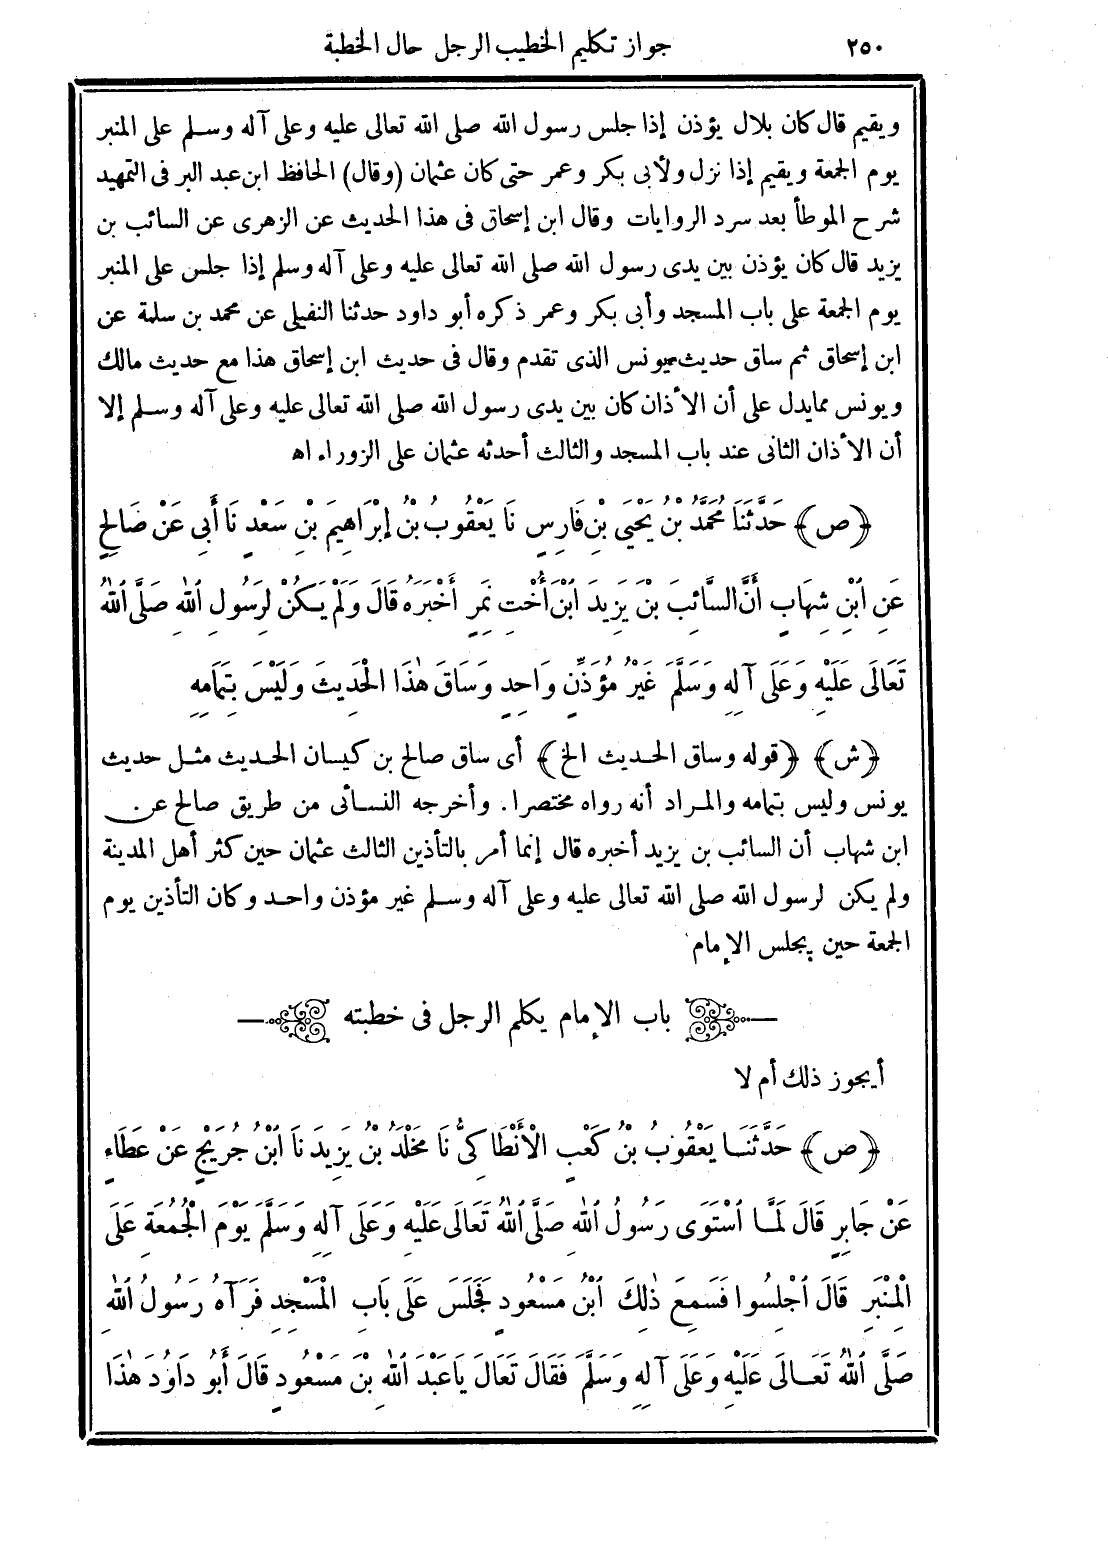 ٢٥٠ جواز تكليم الخطيب الرجل حال الخطبة
ويقيم قال كان بلال يؤذن إذا جلس رسول الله صلى الله تعالى عليه وعلى آله وسلم على المنبر
يوم الجمعة ويقيم إذا نزل ولأبى بكر وعمر حتى كان عثمان (وقال) الحافظ ابن عبد البر فى التمهيد
شرح الموطأ بعد سرد الروايات وقال ابن إسحاق فى هذا الحديث عن الزهرى عن السائب بن
يزيد قال كان يؤذن بين يدى رسول الله صلى الله تعالى عليه وعلى آله وسلم إذا جلس على المنبر
يوم الجمعة على باب المسجد وأبى بكر وعمر ذكره أبو داود حدثنا النفيلى عن محمد بن سلمة عن
ابن إسحاق ثم ساق حديث يونس الذى تقدم وقال فى حديث ابن إسحاق هذا مع حديث مالك
ويونس مايدل على أن الأذان كان بين يدى رسول الله صلى الله تعالى عليه وعلى آله وسلم إلا
أن الأذان الثانى عند باب المسجد والثالث أحدثه عثمان على الزوراء اه
﴿ص﴾ حَدَّثَنَا مُحَمَّدُ بْنُ يَحْيَى بْنِ فَارِسٍ نَا يَعْقُوبُ بْنُ إِبْرَاهِيمَ بْنِ سَعْدٍ نَا أَبِى عَنْ صَالِحٍ
عَنِ ابْنِ شِهَابٍ أَنَّ السَّائِبَ بْنَ يَزِيدَ ابْنَ أُخْتِ نَمِرٍ أَخْبَرَهُ قَالَ وَلَمْ يَكُنْ لِرَسُولِ اللهِ صَلَّى اللهُ
تَعَالَى عَلَيْهِ وَعَلَى آلِهِ وَسَلَّمَ غَيْرُ مُؤَذِّنٍ وَاحِدٍ وَسَاقَ هٰذَا الْحَدِيثَ وَلَيْسَ بِتَمَامِهِ
﴿ش﴾ ﴿قوله وساق الحديث الخ﴾ أى ساق صالح بن كيسان الحديث مثل حديث
يونس وليس بتمامه والمراد أنه رواه مختصرا. وأخرجه النسائى من طريق صالح عن
ابن شهاب أن السائب بن يزيد أخبره قال إنما أمر بالتأذين الثالث عثمان حين كثر أهل المدينة
ولم يكن لرسول الله صلى الله تعالى عليه وعلى آله وسلم غير مؤذن واحد وكان التأذين يوم
الجمعة حين يجلس الإمام
باب الإمام يكلم الرجل فى خطبته
أيجوز ذلك أم لا
﴿ص﴾ حَدَّثَنَا يَعْقُوبُ بْنُ كَعْبٍ الْأَنْطَاكِىُّ نَا مَخْلَدُ بْنُ يَزِيدَ نَا ابْنُ جُرَيْجٍ عَنْ عَطَاءٍ
عَنْ جَابِرٍ قَالَ لَمَّا اسْتَوَى رَسُولُ اللهِ صَلَّى اللهُ تَعَالَى عَلَيْهِ وَعَلَى آلِهِ وَسَلَّمَ يَوْمَ الْجُمُعَةِ عَلَى
الْمِنْبَرِ قَالَ اجْلِسُوا فَسَمِعَ ذٰلِكَ ابْنُ مَسْعُودٍ فَجَلَسَ عَلَى بَابِ الْمَسْجِدِ فَرَآهُ رَسُولُ اللهِ
صَلَّى اللهُ تَعَالَى عَلَيْهِ وَعَلَى آلِهِ وَسَلَّمَ فَقَالَ تَعَالَ يَا عَبْدَ اللهِ بْنَ مَسْعُودٍ قَالَ أَبُو دَاوُدَ هٰذَا